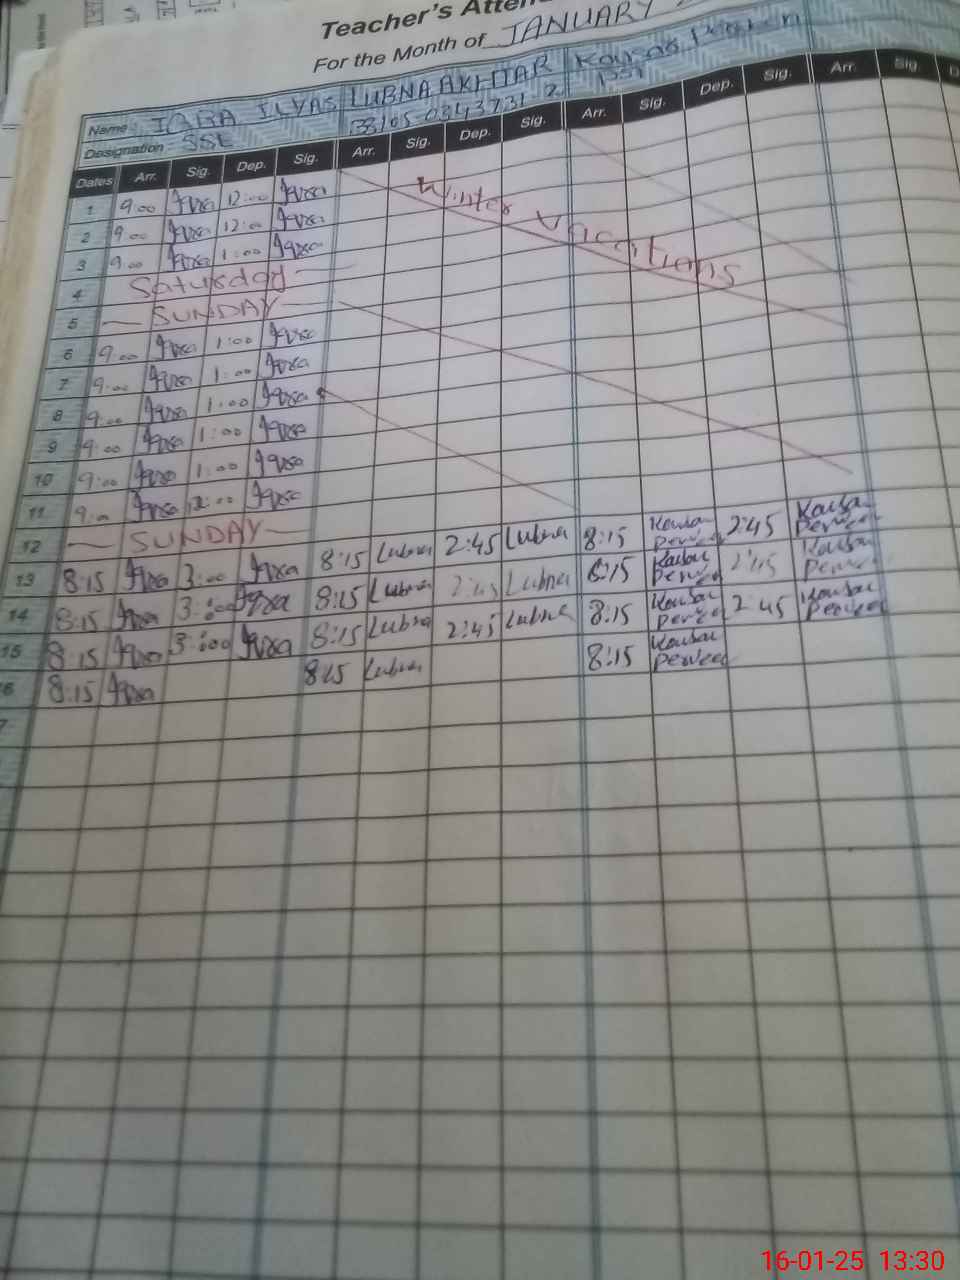 Teacher's Atten
For the Month of JANUARY
Name: IQRA ILYAS LUBNA AKHTAR Kousar Perveen
Designation: SSE 33105-0343731-2 PST
Dates Arr. Sig. Dep. Sig. Arr. Sig. Dep. Sig. Arr. Sig. Dep. Sig. Arr. Sig. D
1 9:00 Iqra 12:00 Iqra
Winter Vacations
2 9:00 Iqra 12:00 Iqra
3 9:00 Iqra 1:00 Iqra
4 Saturday
5 SUNDAY
6 9:00 Iqra 1:00 Iqra
7 9:00 Iqra 1:00 Iqra
8 9:00 Iqra 1:00 Iqra
9 9:00 Iqra 1:00 Iqra
10 9:00 Iqra 1:00 Iqra
11 Iqra Iqra
12 SUNDAY
13 8:15 Iqra 3:00 Iqra 8:15 Lubna 2:45 Lubna 8:15 Kousar Perveen 2:45 Kousar Perveen
14 8:15 Iqra 3:00 Iqra 8:15 Lubna 2:45 Lubna 8:15 Kousar Perveen 2:45 Kousar Perveen
15 8:15 Iqra 3:00 Iqra 8:15 Lubna 2:45 Lubna 8:15 Kousar Perveen 2:45 Kousar Perveen
6 8:15 Iqra 8:15 Lubna 8:15 Kousar Perveen
7
16-01-25 13:30